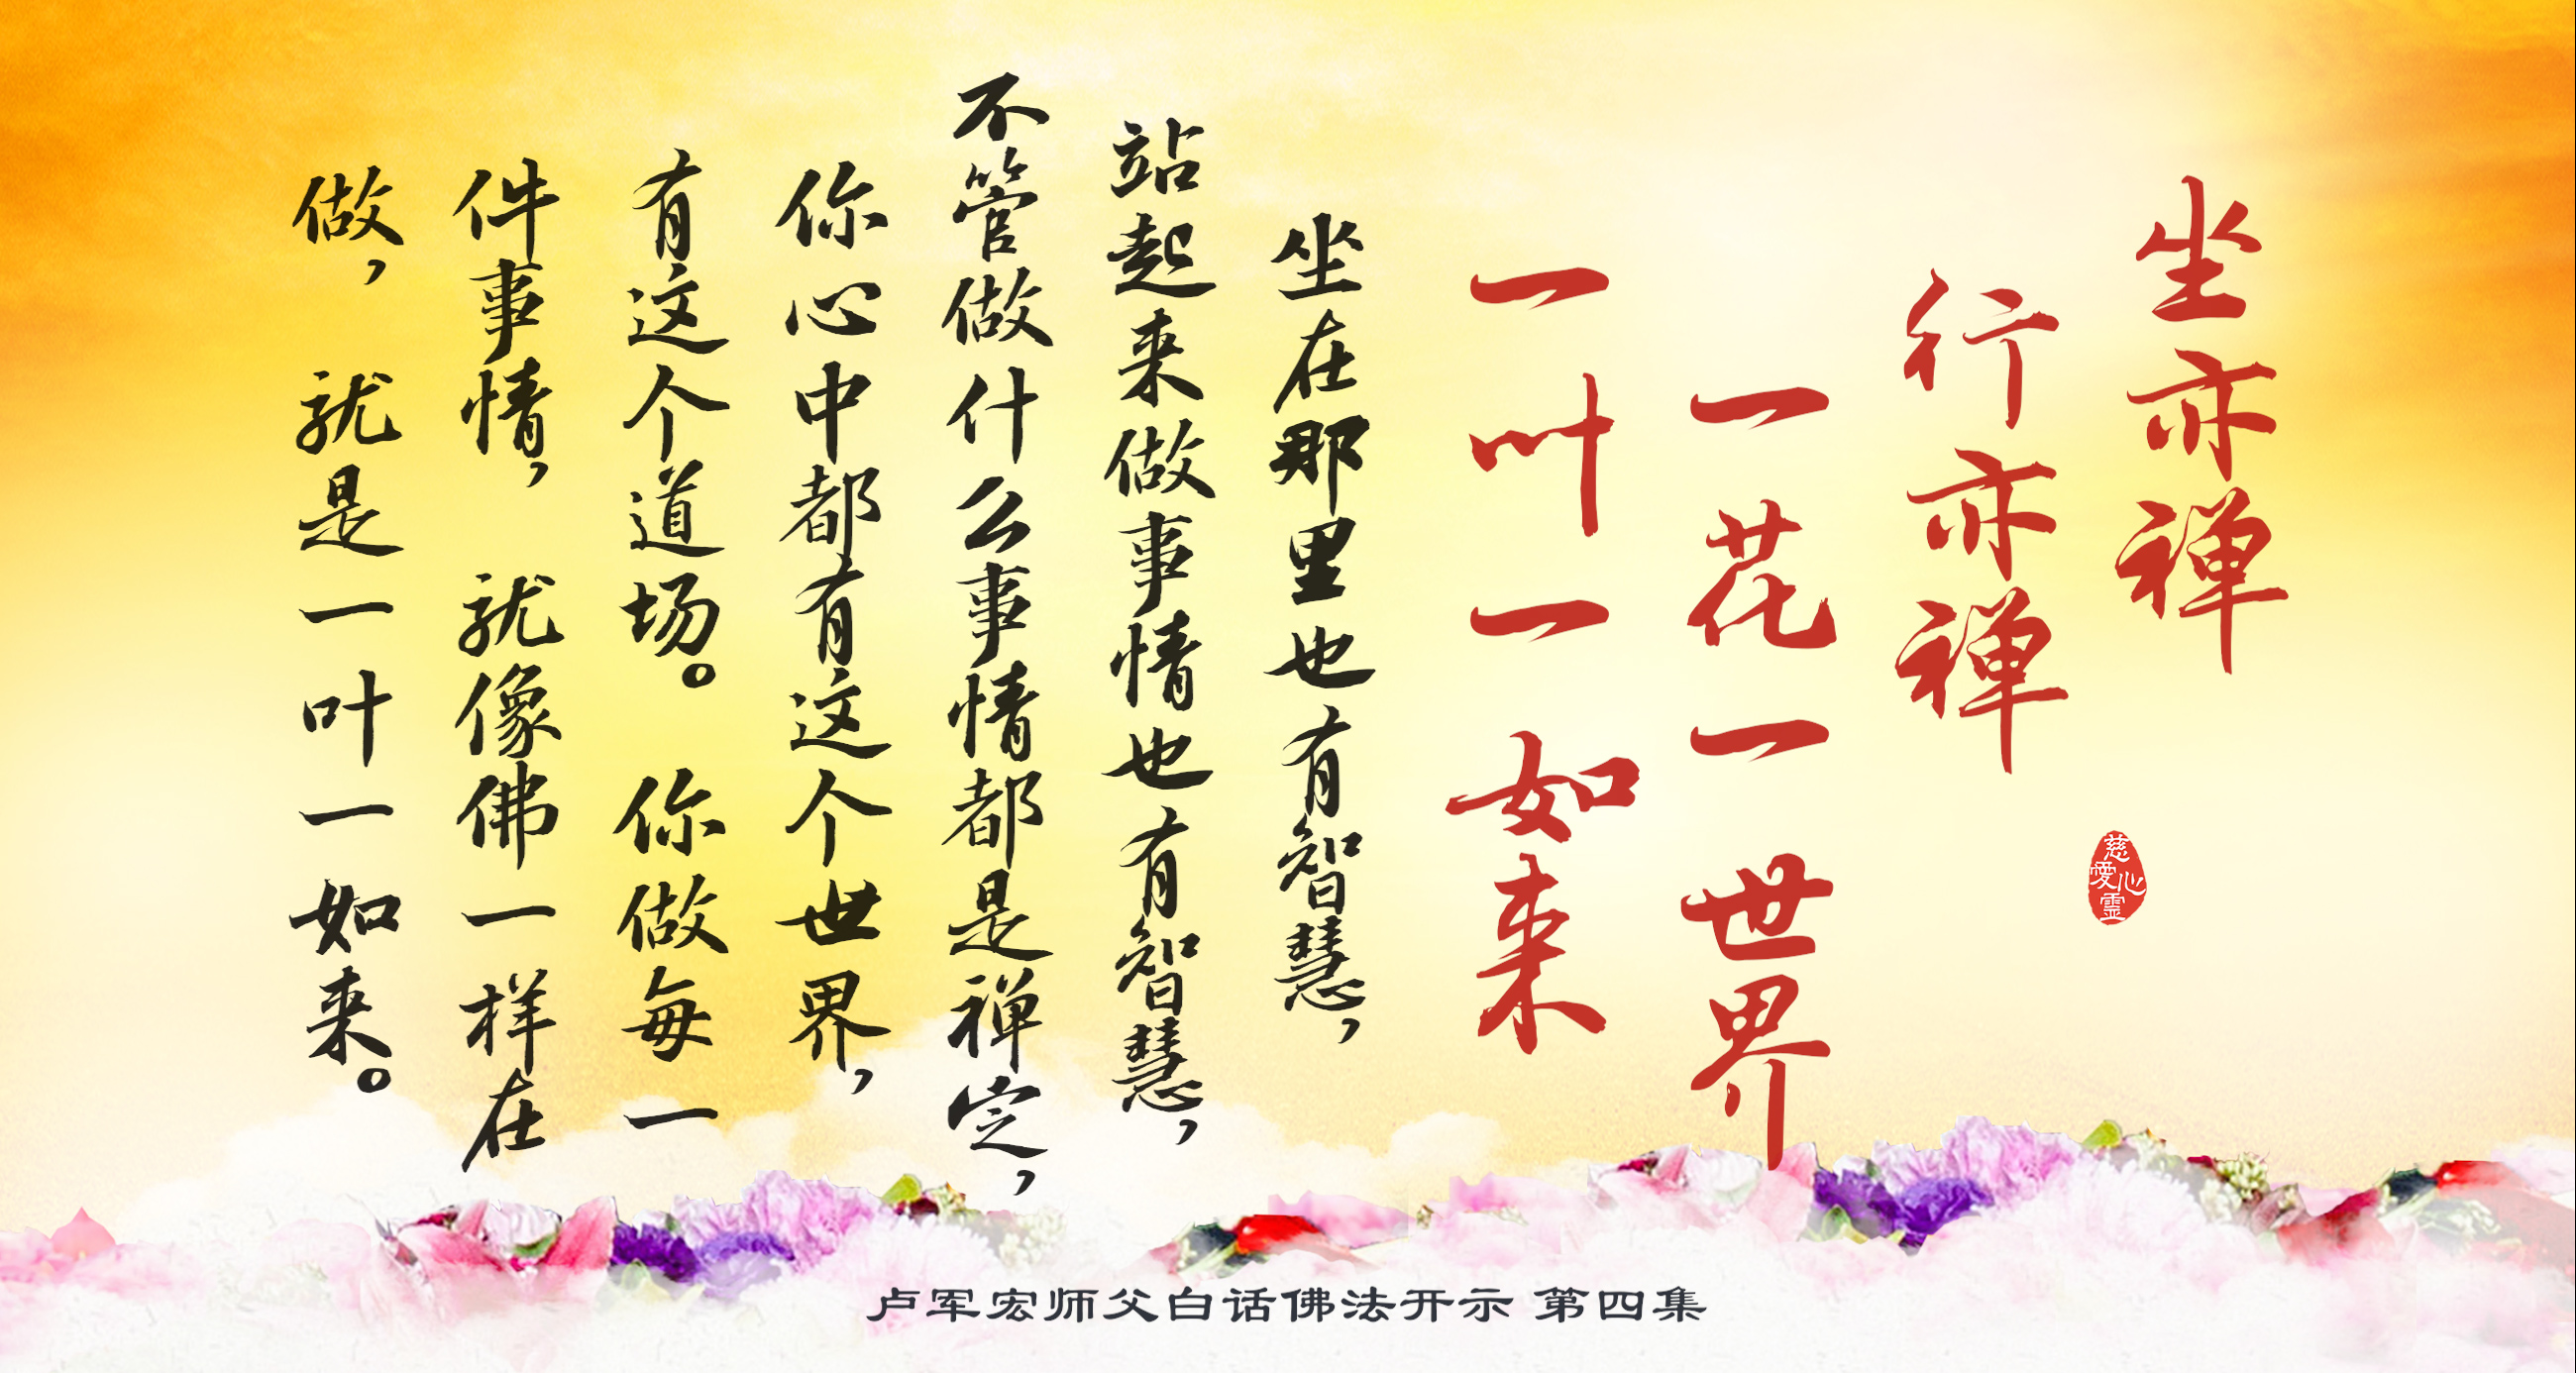 坐亦禅
行亦禅
一花一世界
一叶一如来
坐在那里也有智慧，
站起来做事情也有智慧，
不管做什么事情都是禅定，
你心中都有这个世界，
有这个道场。 你做每一
件事情， 就像佛一样在
做， 就是一叶一如来。
慈心愛靈
卢军宏师父白话佛法开示 第四集